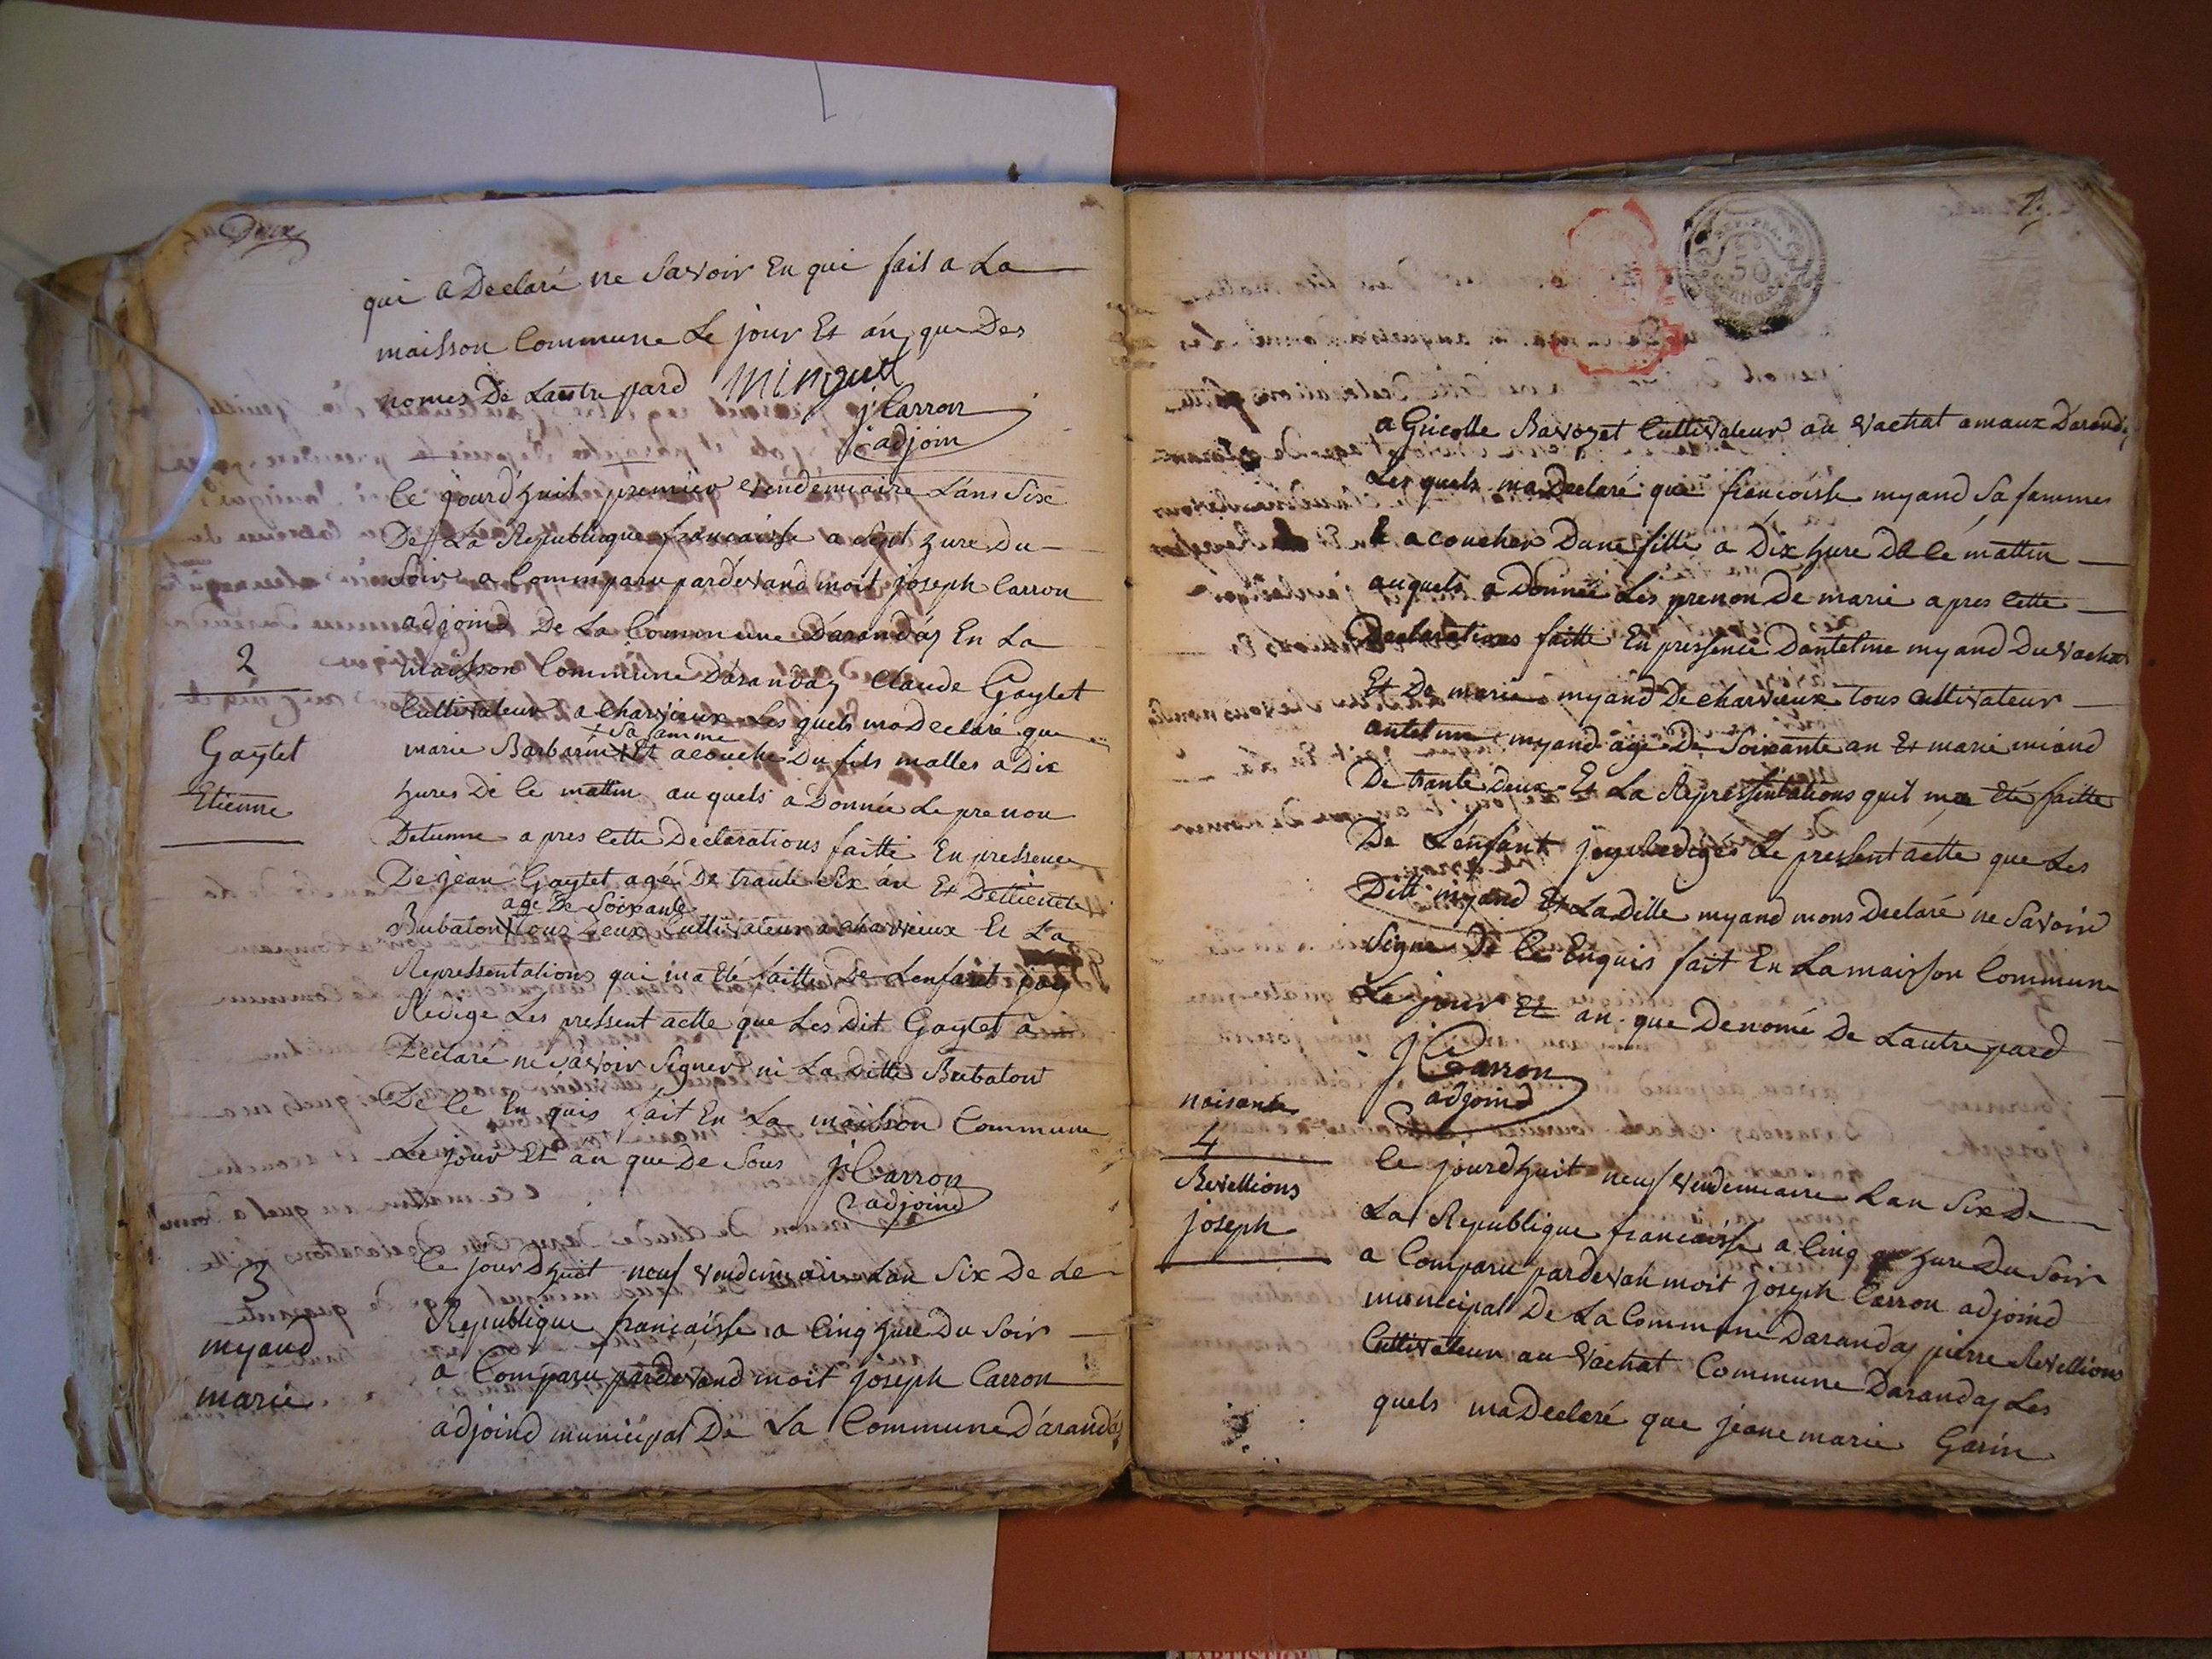 Deux
qui a Declaré ne Savoir En qui fait a La
maisson Commune Le jour Et án que Des
nomes De Lautre pard Minguet
j Carron
adjoin
Ce jourd'huit premier vendemiaire L'ans Six
De La Republique francaisse a Sept hure du
Soir a Commparu pardevand moit joseph Carron
adjoind De La Commune D'arandas En La
maisson Commune D'aranday Claude Gaytet
Cultivateur a Charvieux Les quels ma Declaré que
+ Sa famme
marie Barbarin + Et acouché Du fils malles a Dix
hures De Ce mattin au quels a Donnée Le prenon
Detienne a pres Cette Declarations faitte En pressence
De jean Gaytet agé De trante Six án Et Detiennette
age De Soixante
Bubaton tous Deux Cultivateur a charvieux Et La
Repressentations qui ma Eté faitte De Lenfant jay
Redige Les pressent actte que Les Dit Gaytet a
Declare ne Savoir Signer ni La Ditte Bubaton
De Ce En quis fait En La maisson Commune
Le jour Et an que De Sous j Carron
adjoind
2
Gaytet
Etienne
Ce jourd'huit neuf vendemiaire Lan Six De Le
Republique françaisse a Cinq hure Du Soir
a Comparu pardevand moit joseph Carron
adjoind municipal De La Commune D'arandas
3
myand
marie
2
50
a Bavozet Cultivateur au vachat amaux Darandas
Les quels ma Declaré que francoisse myand Sa fammes
a coucher Dune fille a Dix hure De Ce mattin
auquels a Donnée Les prenon De marie apres Cette
Declarations faitte En pressence Dantelme myand Du vachat
Et De marie myand De charvieux tous Cultivateur
antelme myand age De Soixante an Et marie miand
De trante deux Et La Repressentations quil ma Eté faitte
De L'enfant jay Redigés Le pressent actte que Les
Ditt myand Et La Ditte myand mons Declaré ne Savoir
Signe De Ce Enquis fait En La maisson Commune
Le jour Et an que Denomé De Lautre pard
J Carron
adjoind
naisance
4
Revellions
joseph
Ce jourd'huit neuf vendemiaire Lan Six De
La Republique françaisse a Cinq hure Du Soir
a Comparu pardevan moit joseph Carron adjoind
municipal De La Commune Darandas pierre Revellions
Cultivateur au vachat Commune Darandas Les
quels ma Declaré que jeane marie Garin